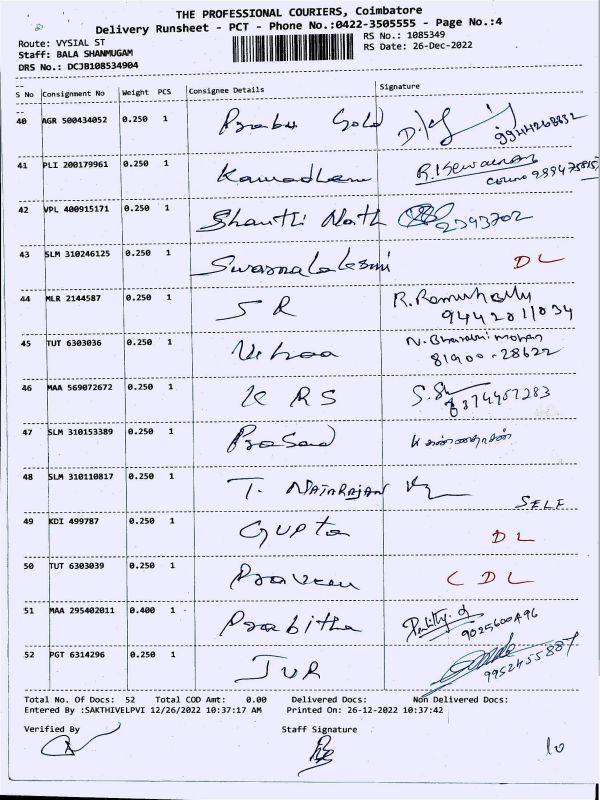 THE PROFESSIONAL COURIERS, Coimbatore
Delivery Runsheet - PCT - Phone No.:0422-3505555 - Page No.:4
Route: VYSIAL ST
RS No.: 1085349
Staff: BALA SHANMUGAM
RS Date: 26-Dec-2022
DRS No.: DCJB108534904
S No Consignment No Weight PCS Consignee Details Signature
40 AGR 500434052 0.250 1 Prabu Gold
41 PLI 200179961 0.250 1 Kamadhenu
42 VPL 400915171 0.250 1 Shanthi Nath 2393702
43 SLM 310246125 0.250 1 Swarnalakshmi DL
44 MLR 2144587 0.250 1 S R
9442811034
45 TUT 6303036 0.250 1 N. Bharathi mohan
81900-28622
46 MAA 569072672 0.250 1 K R S
8374457283
47 SLM 310153389 0.250 1 Prasad
48 SLM 310110817 0.250 1 T. NATARAJAN
SELF
49 KDI 499787 0.250 1 Gupta DL
50 TUT 6303039 0.250 1 Praveen C DL
51 MAA 295402011 0.400 1 Prabitha
9025600496
52 PGT 6314296 0.250 1 JVR
9952455887
Total No. Of Docs: 52 Total COD Amt: 0.00 Delivered Docs: Non Delivered Docs:
Entered By :SAKTHIVELPVI 12/26/2022 10:37:17 AM Printed On: 26-12-2022 10:37:42
Verified By Staff Signature
10